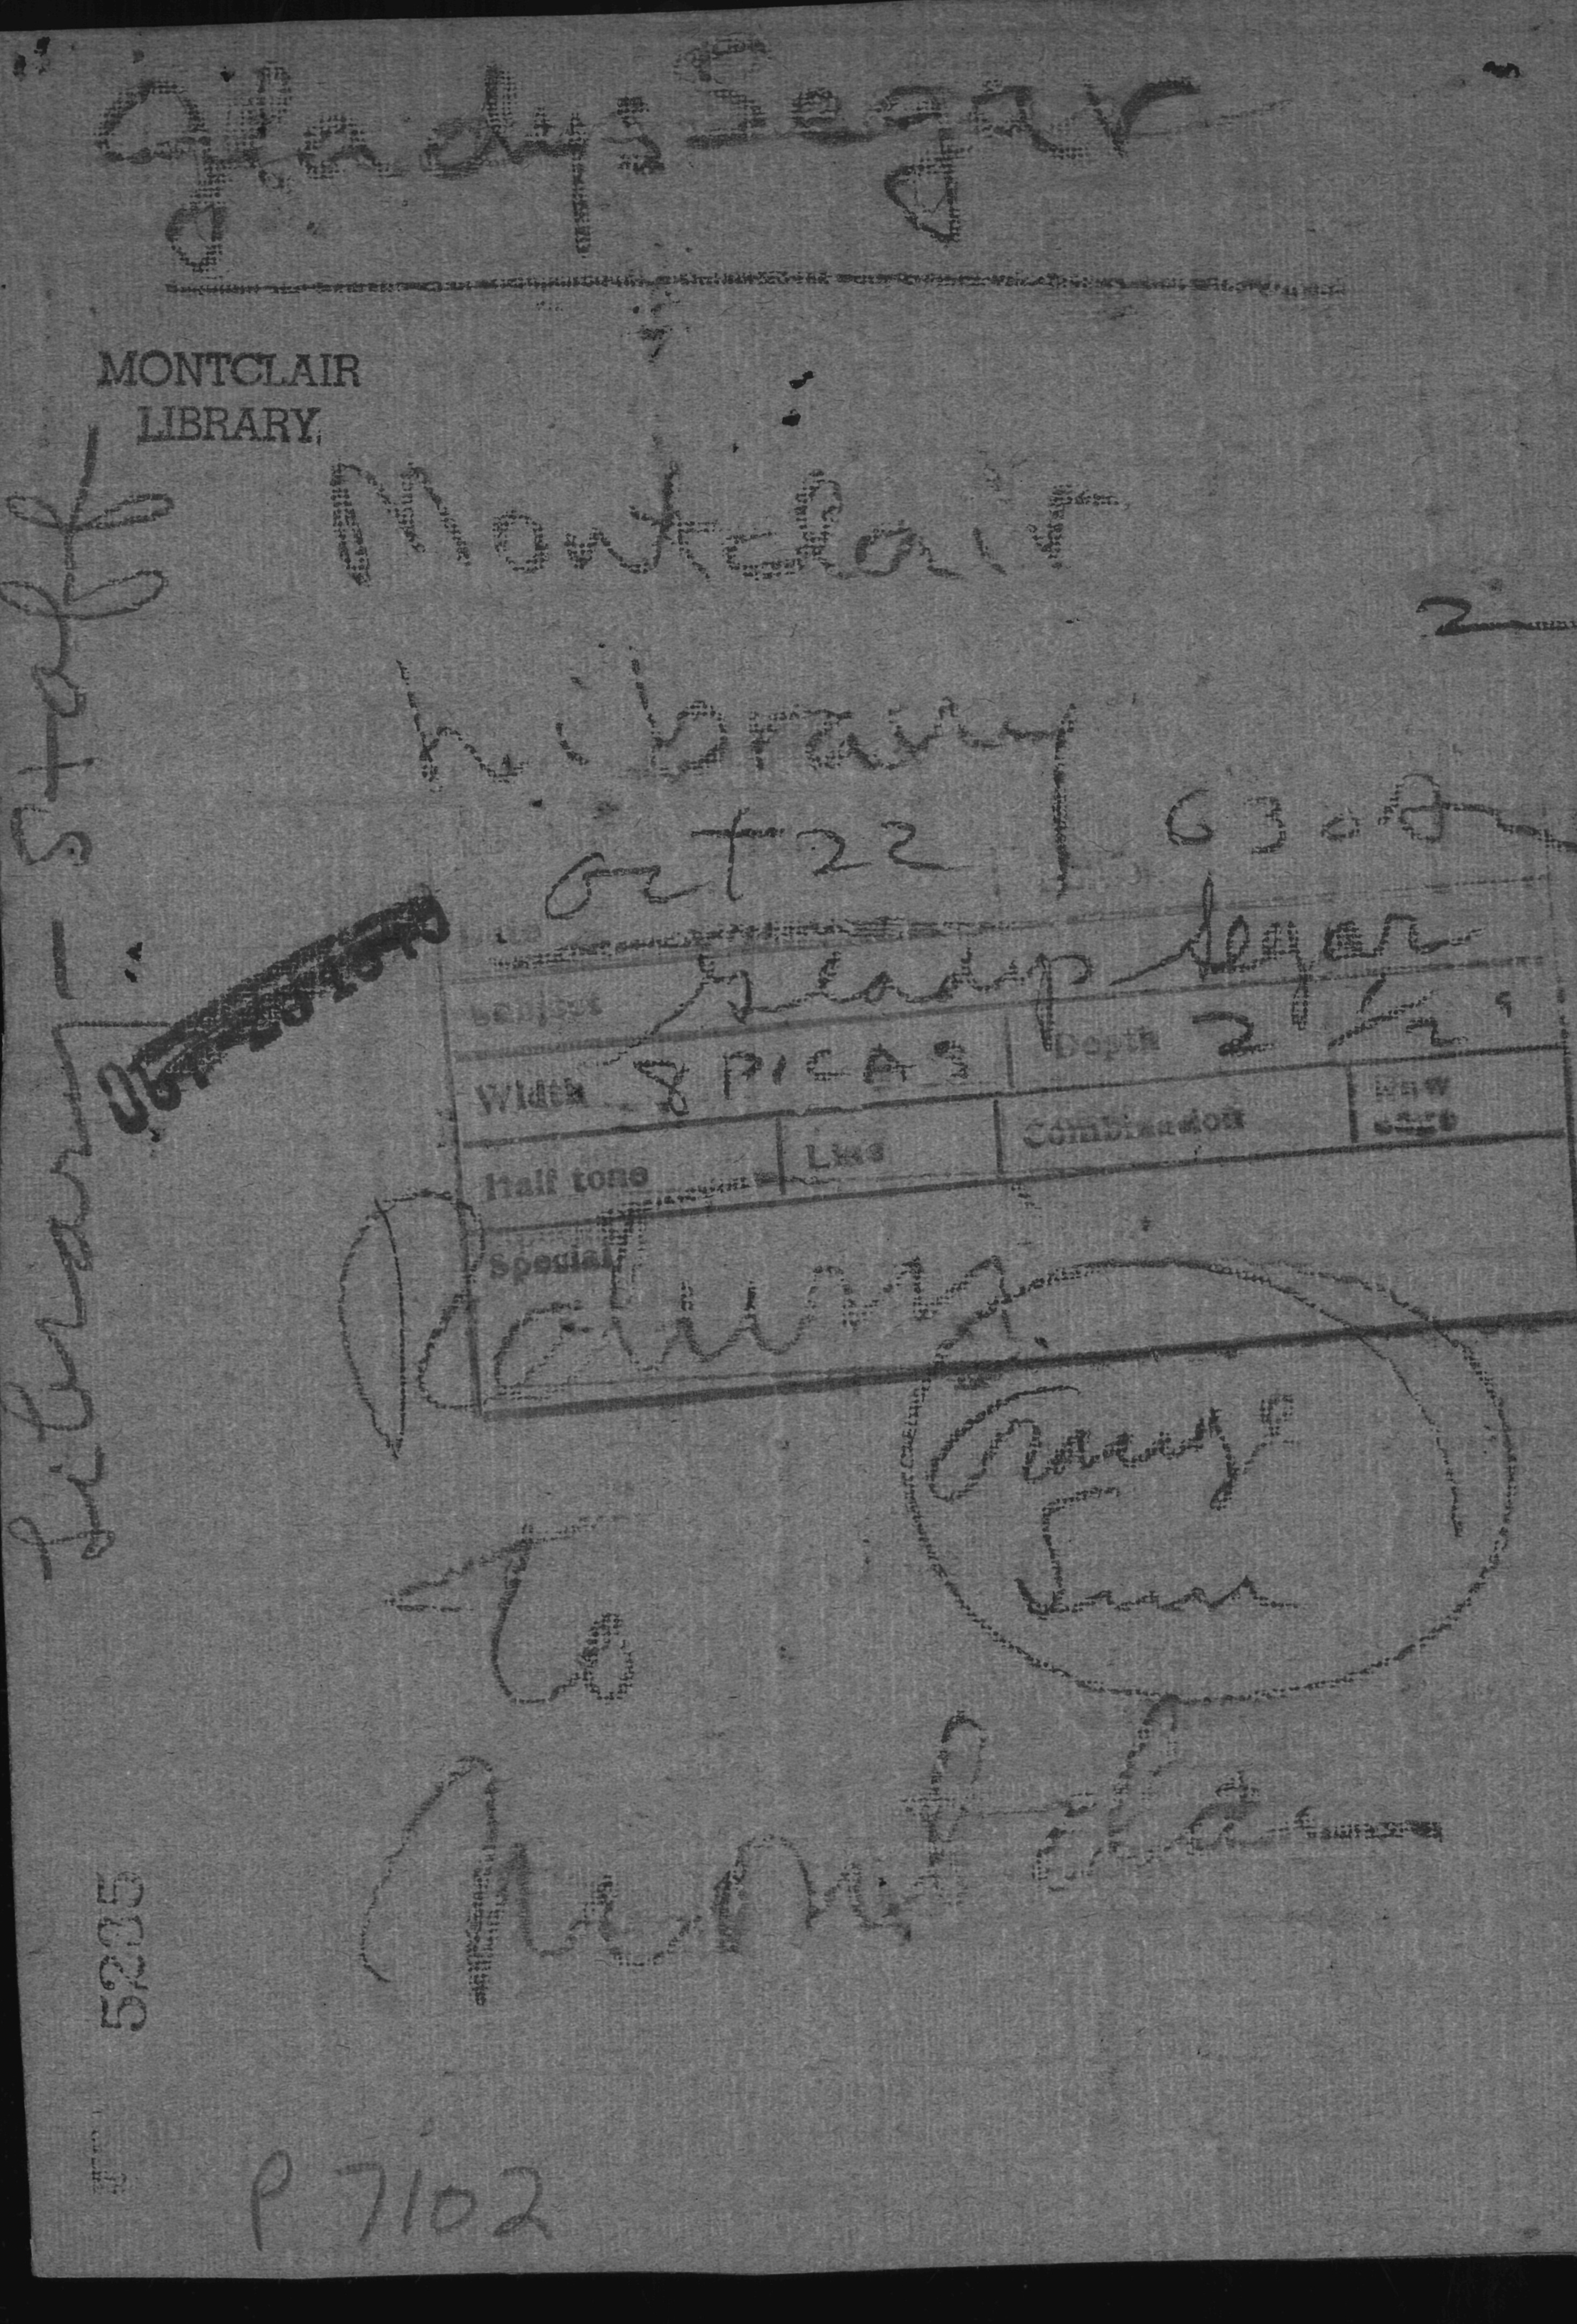 Gladys Segar
MONTCLAIR
LIBRARY,
Montclair
Library
Oct 22
6308
2
Subject Gladys Segar
Width 8 PICAS Depth 2 1/2"
Half tone Line Combination New
edge
Special
Return
To
Library - Staff -
5235
P 7102